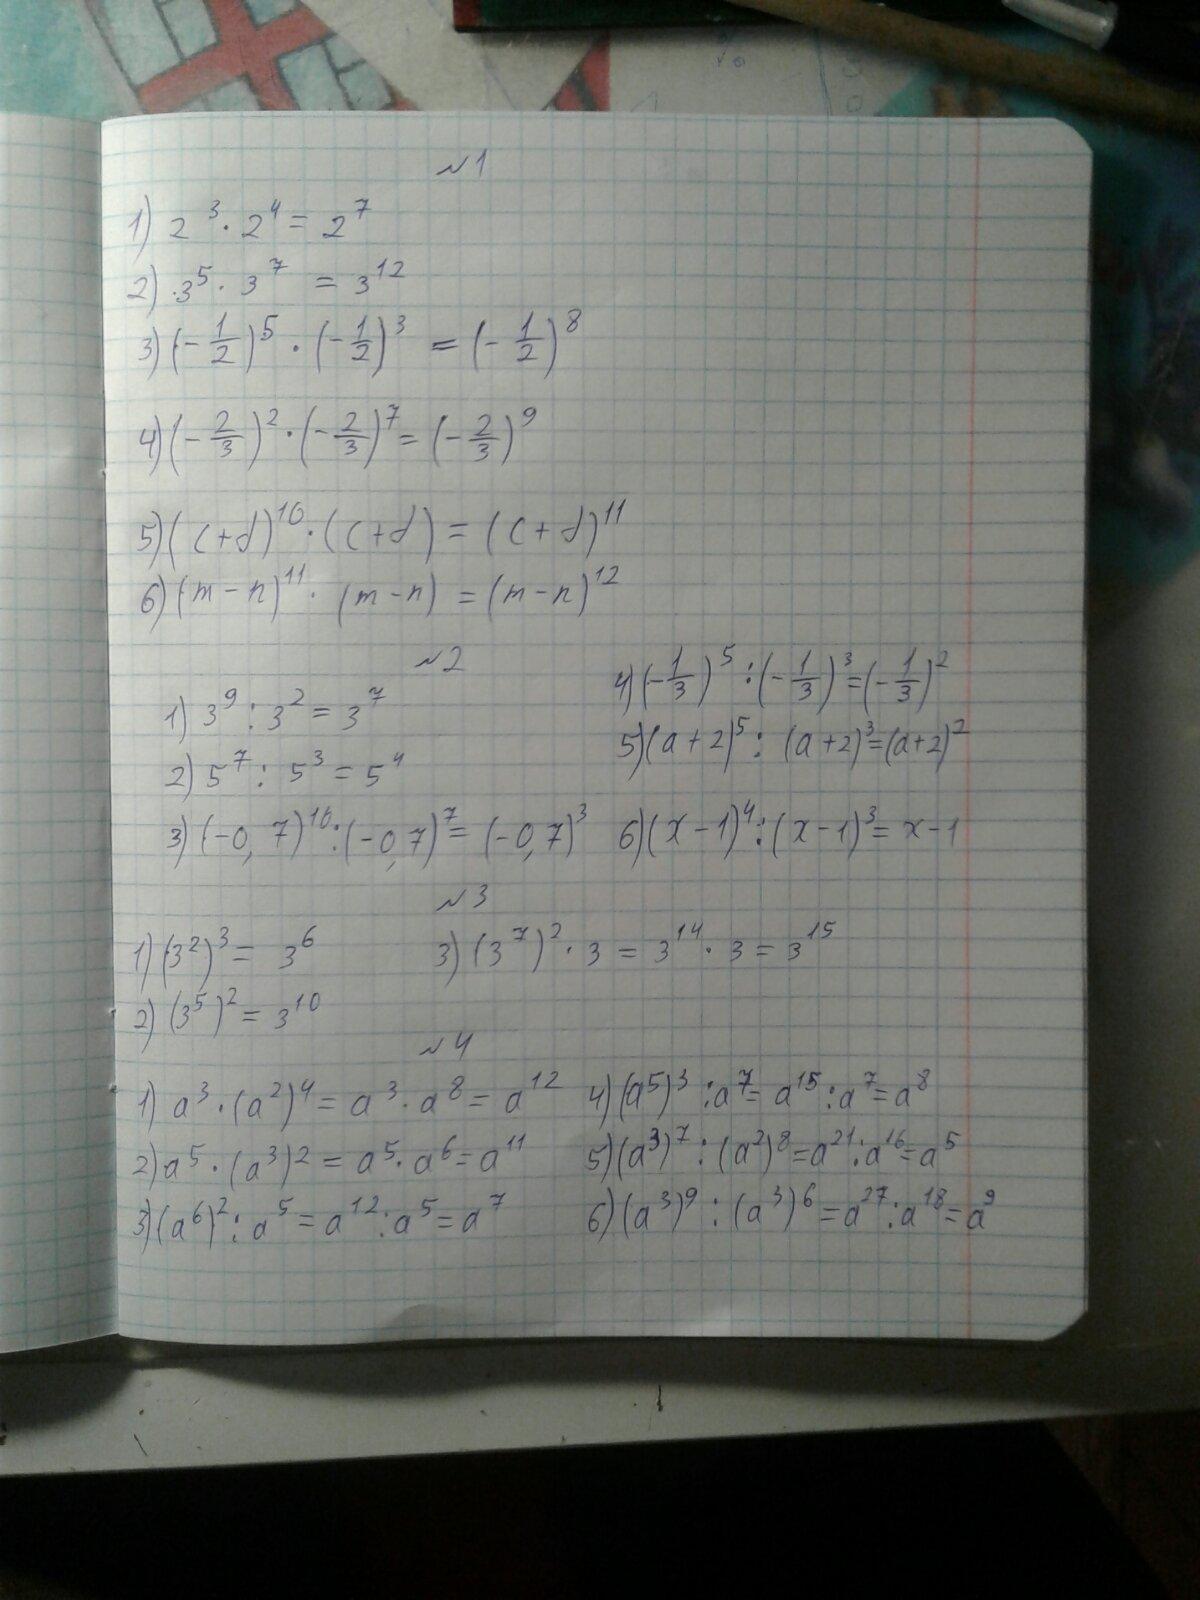 №1
1) 2³ · 2⁴ = 2⁷
2) 3⁵ · 3⁷ = 3¹²
3) (-1/2)⁵ · (-1/2)³ = (-1/2)⁸
4) (-2/3)² · (-2/3)⁷ = (-2/3)⁹
5) (c+d)¹⁰ · (c+d) = (c+d)¹¹
6) (m-n)¹¹ · (m-n) = (m-n)¹²
№2
1) 3⁹ : 3² = 3⁷
2) 5⁷ : 5³ = 5⁴
3) (-0,7)¹⁰ : (-0,7)⁷ = (-0,7)³
4) (-1/3)⁵ : (-1/3)³ = (-1/3)²
5) (a+2)⁵ : (a+2)³ = (a+2)²
6) (x-1)⁴ : (x-1)³ = x-1
№3
1) (3²)³ = 3⁶
2) (3⁵)² = 3¹⁰
3) (3⁷)² · 3 = 3¹⁴ · 3 = 3¹⁵
№4
1) a³ · (a²)⁴ = a³ · a⁸ = a¹²
2) a⁵ · (a³)² = a⁵ · a⁶ = a¹¹
3) (a⁶)² : a⁵ = a¹² : a⁵ = a⁷
4) (a⁵)³ : a⁷ = a¹⁵ : a⁷ = a⁸
5) (a³)⁷ : (a²)⁸ = a²¹ : a¹⁶ = a⁵
6) (a³)⁹ : (a³)⁶ = a²⁷ : a¹⁸ = a⁹